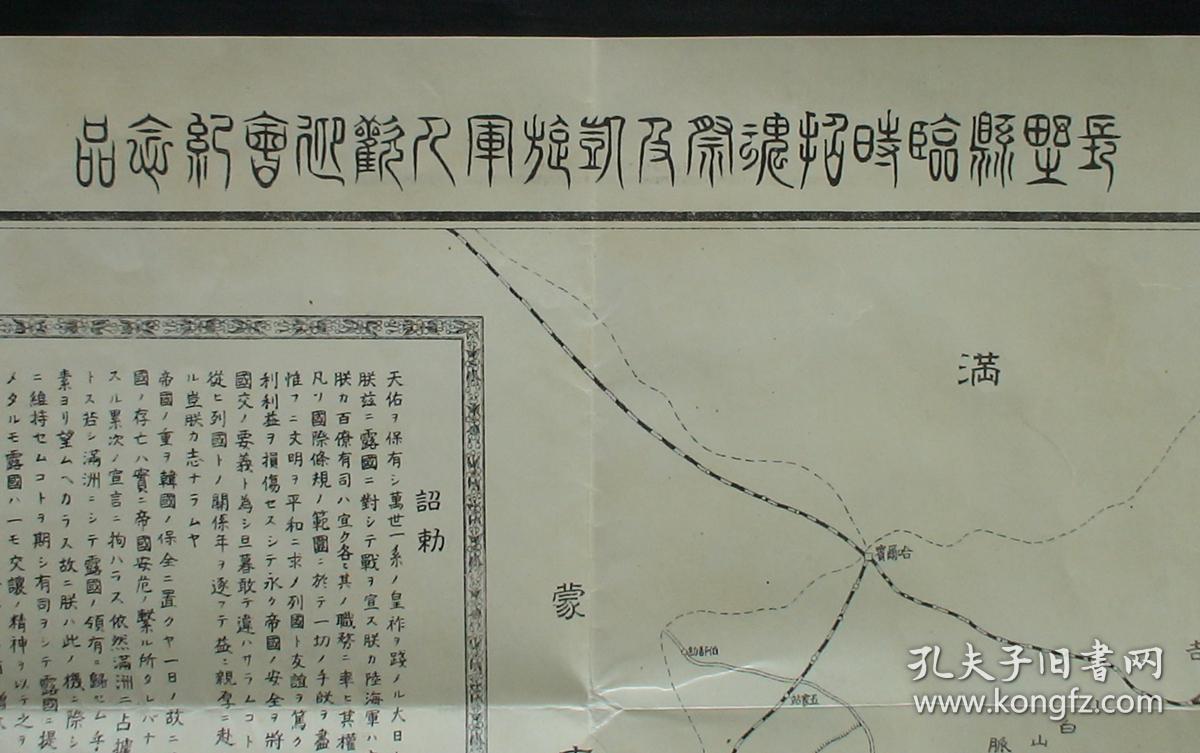 長野縣臨時招魂祭及凱旋軍人歡迎會紀念品
詔勅
天佑ヲ保有シ萬世一系ノ皇祚ヲ踐メル大日
朕茲ニ露國ニ對シテ戰ヲ宣ス朕カ陸海軍ハ
朕カ百僚有司ハ宜ク各〻其ノ職務ニ率ヒ其權
凡ソ國際條規ノ範圍ニ於テ一切ノ手段ヲ盡
惟フニ文明ヲ平和ニ求ノ列國ト友誼ヲ篤ク
利利益ヲ損傷セスシテ永ク帝國ノ安全ヲ將
國交ノ要義ト為シ旦暮敢テ違ハサラムコト
從ヒ列國トノ關係年ヲ逐フテ益〻親厚ニ赴
ル豈朕カ志ナラムヤ
帝國ノ重ヲ韓國ノ保全ニ置クヤ一日ノ故ニ
國ノ存亡ハ實ニ帝國安危ノ繋ル所タレバナ
スル累次ノ宣言ニ拘ハラス依然滿洲ニ占據
トス若シ滿洲ニシテ露國ノ領有ニ歸セムカ
素ヨリ望ムヘカラス故ニ朕ハ此ノ機ニ際シ
ニ維持セムコトヲ期シ有司ヲシテ露國ニ提
メタルモ露國ハ一モ交讓ノ精神ヲ以テ之ヲ
満
哈爾賓
蒙
吉
白
山
脈
孔夫子旧书网
www.kongfz.com